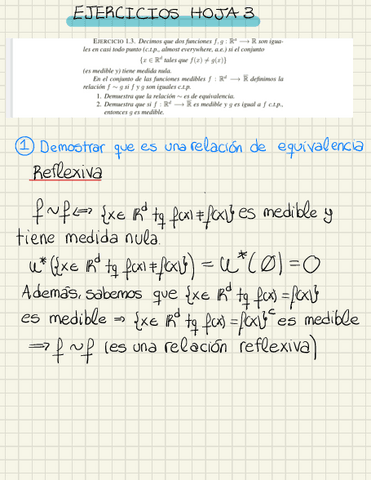 EJERCICIOS HOJA 3
EJERCICIO 1.3. Decimos que dos funciones f, g : ℝᵈ ⟶ ℝ̄ son igua-
les en casi todo punto (c.t.p., almost everywhere, a.e.) si el conjunto
{x ∈ ℝᵈ tales que f(x) ≠ g(x)}
(es medible y) tiene medida nula.
En el conjunto de las funciones medibles f : ℝᵈ ⟶ ℝ̄ definimos la
relación f ∼ g si f y g son iguales c.t.p.
1. Demuestra que la relación ∼ es de equivalencia.
2. Demuestra que si f : ℝᵈ ⟶ ℝ̄ es medible y g es igual a f c.t.p.,
entonces g es medible.
① Demostrar que es una relación de equivalencia
Reflexiva
f∼f ⟺ {x∈ ℝᵈ tq f(x)≠f(x)} es medible y
tiene medida nula.
μ*({x∈ ℝᵈ tq f(x)≠f(x)}) = μ*(∅) = 0
Además, sabemos que {x∈ ℝᵈ tq f(x)=f(x)}
es medible ⇒ {x∈ ℝᵈ tq f(x)=f(x)}ᶜ es medible
⟹ f∼f (es una relación reflexiva)